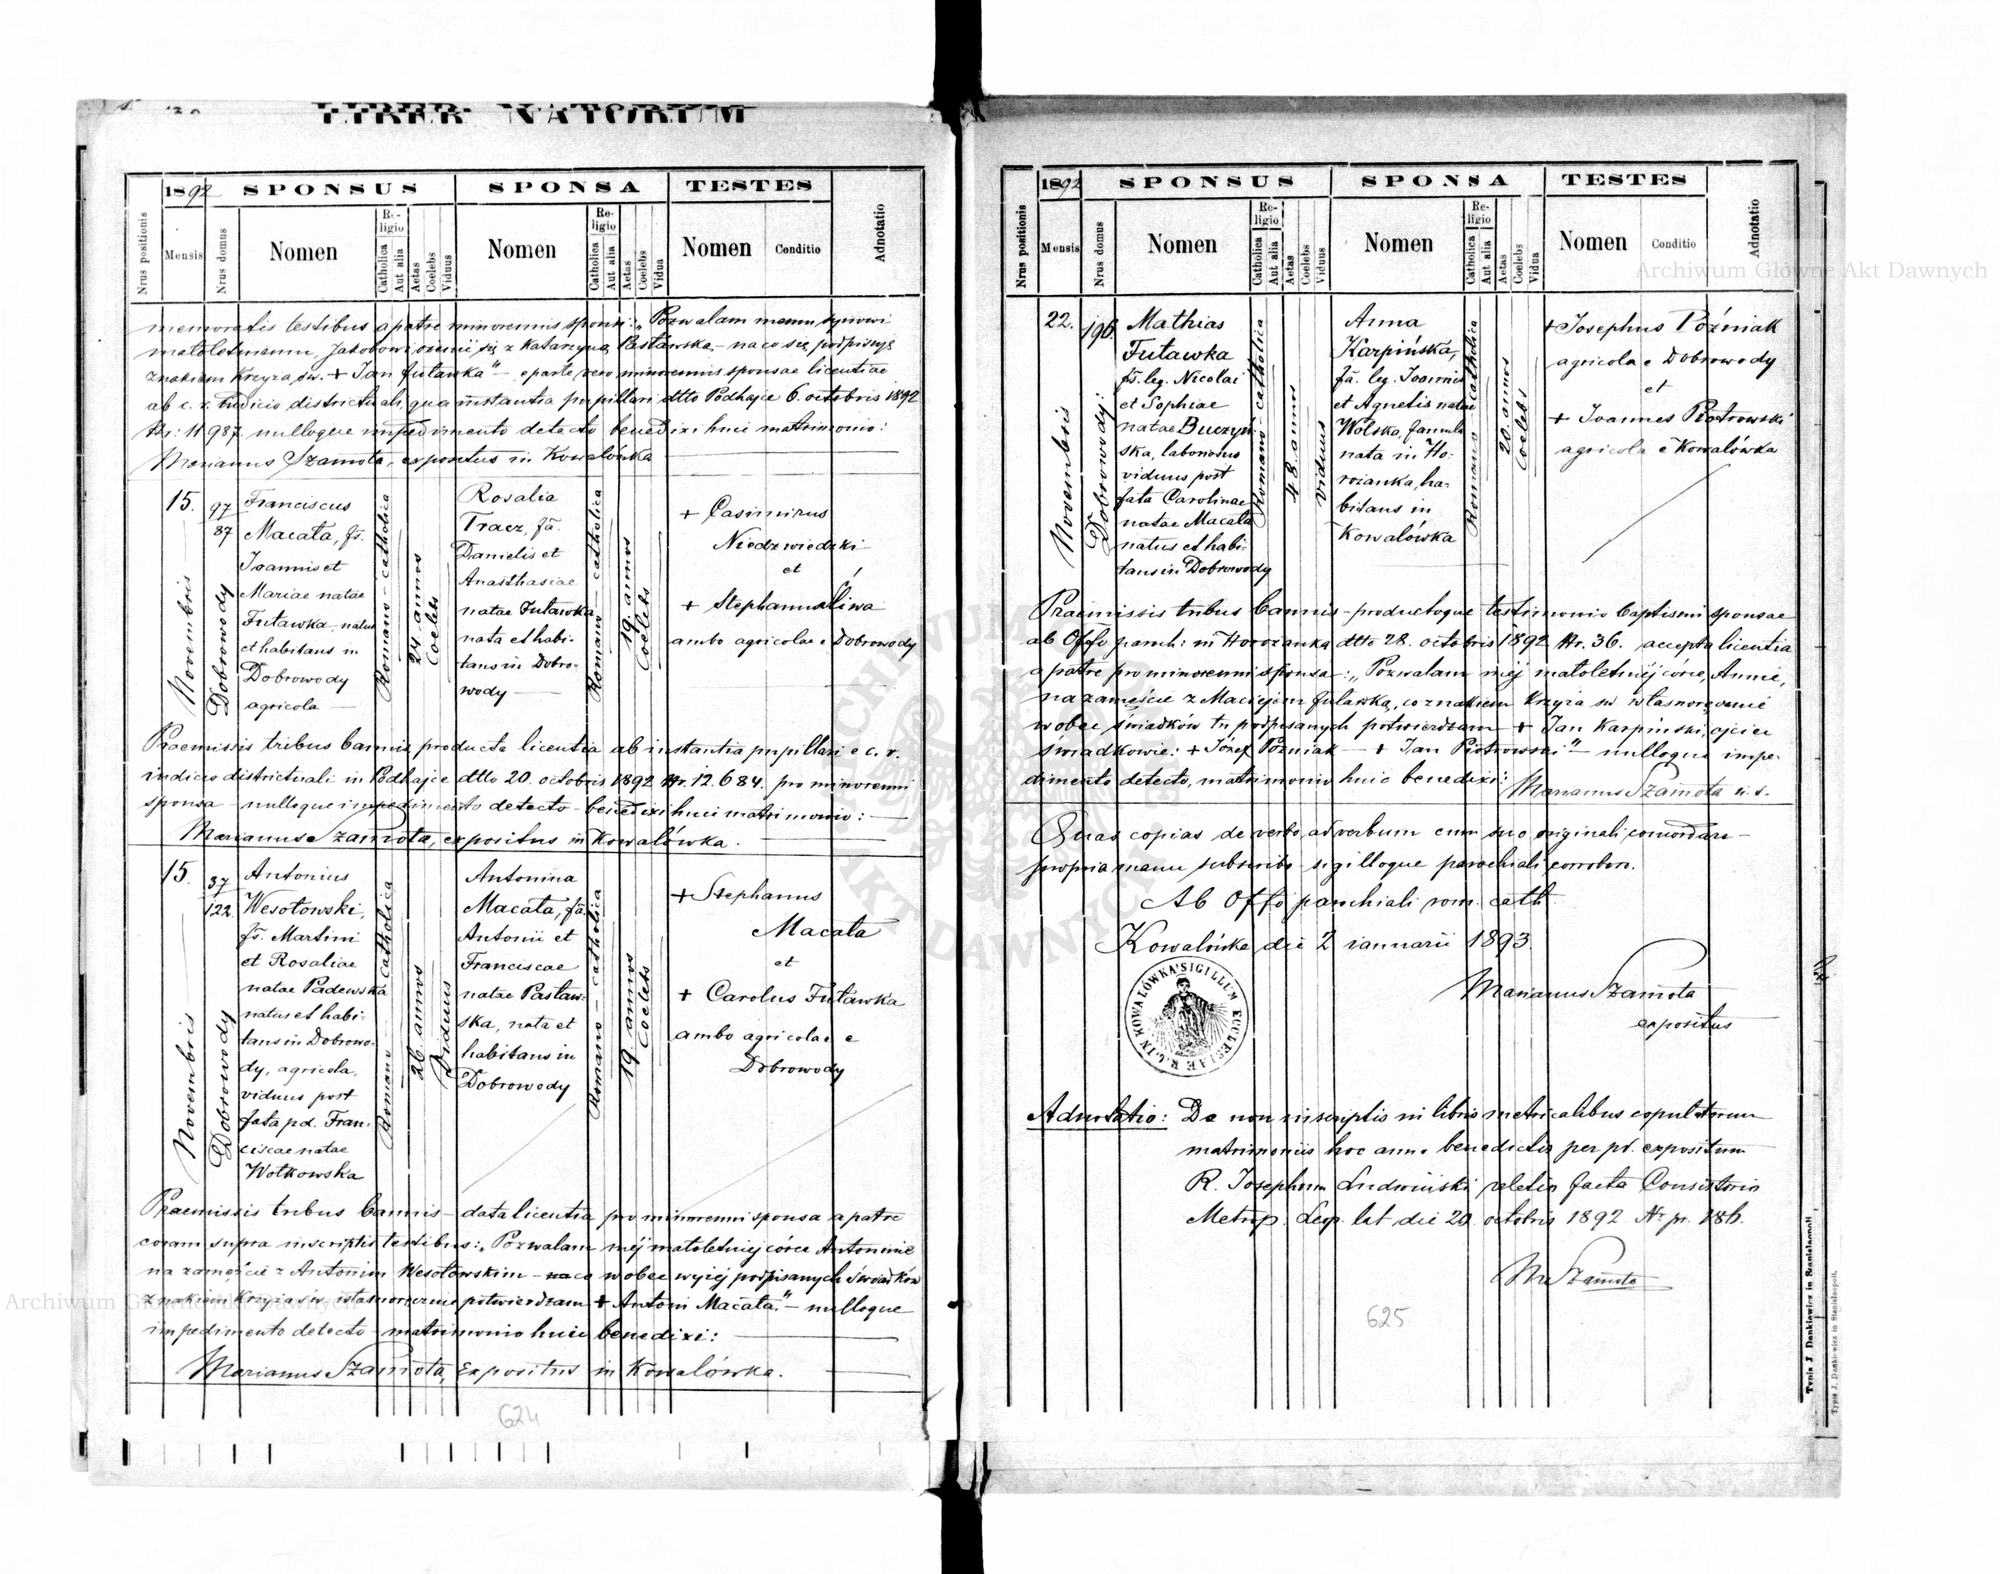 LIBER NATORUM
1892 SPONSUS SPONSA TESTES
Nrus positionis
Mensis
Nrus domus
Nomen
Religio
Catholica
Aut alia
Aetas
Coelebs
Viduus
Nomen
Religio
Catholica
Aut alia
Aetas
Coelebs
Vidua
Nomen
Conditio
Adnotatio
memoratis testibus a patre minorennis sponsi: „Pozwalam memu synowi
małoletniemu, Jakóbowi ożenić się z Katarzyną Pasławską – na co się podpisuję
znakiem krzyża św. + Jan Futawka" – e parte vero minorennis sponsae licentiae
ab c. r. Iudicio districtuali, qua instantia pupillari dtto Podhajce 6. octobris 1892
Nr: 11987. nulloque impedimento detecto benedixi huic matrimonio:
Marianus Szamota, expositus in Kowalówka
15.
Novembris
97
87
Dobrowody
Franciscus
Macała, fs.
Joannis et
Mariae natae
Futawka, natus
et habitans in
Dobrowody
agricola
Romano-catholica
24 annos
Coelebs
Rosalia
Tracz, fa.
Danielis et
Anasthasiae
natae Futawka
nata et habi-
tans in Dobro-
wody
Romano-catholica
19. annos
Coelebs
+ Casimirus
Niedzwiedzki
et
+ Stephanus Śliwa
ambo agricolae e Dobrowody
Praemissis tribus bannis, producta licentia ab instantia pupillari e c. r.
iudicio districtuali in Podhajce dtto 20. octobris 1892 Nr. 12.684. pro minorenni
sponsa – nulloque impedimento detecto – benedixi huic matrimonio:
Marianus Szamota, expositus in Kowalówka.
15.
Novembris
37
122
Dobrowody
Antonius
Wesołowski,
fs. Martini
et Rosaliae
natae Padewska
natus et habi-
tans in Dobrowo-
dy, agricola,
viduus post
fata pd. Fran-
ciscae natae
Wołkowska
Romano-catholica
26. annos
Viduus
Antonina
Macała, fa.
Antonii et
Franciscae
natae Pasław-
ska, nata et
habitans in
Dobrowody
Romano-catholica
19. annos
Coelebs
+ Stephanus
Macała
et
+ Carolus Futawka
ambo agricolae e
Dobrowody
Praemissis tribus bannis – data licentia pro minorenni sponsa a patre
coram supra inscriptis testibus: „Pozwalam mej małoletniej córce Antoninie
na zamęście z Antonim Wesołowskim – na co wobec wyżej podpisanych świadków
znakiem krzyża św. własnoręcznie potwierdzam + Antoni Macała." – nulloque
impedimento detecto – matrimonio huic benedixi:
Marianus Szamota, expositus in Kowalówka.
624
1892 SPONSUS SPONSA TESTES
Nrus positionis
Mensis
Nrus domus
Nomen
Religio
Catholica
Aut alia
Aetas
Coelebs
Viduus
Nomen
Religio
Catholica
Aut alia
Aetas
Coelebs
Vidua
Nomen
Conditio
Adnotatio
22.
Novembris
196.
Dobrowody:
Mathias
Futawka
fs. leg. Nicolai
et Sophiae
natae Buczyń-
ska, laboriosus
viduus post
fata Carolinae
natae Macała
natus et habi-
tans in Dobrowody
Romano-catholica
48. annos
viduus
Anna
Karpińska,
fa. leg. Joannis
et Agnetis natae
Wolska, famula
nata in Ho-
rożanka, ha-
bitans in
Kowalówka
Romano catholica
20. annos
Coelebs
+ Josephus Poźniak
agricola e Dobrowody
et
+ Joannes Piotrowski
agricola e Kowalówka
Praemissis tribus bannis – productoque testimonio baptismi sponsae
ab Offo paroch: in Horożanka dtto 28. octobris 1892 Nr. 36. accepta licentia
a patre pro minorenni sponsa: „Pozwalam mej małoletniej córce, Annie,
na zamęście z Maciejem Futawką, co znakiem krzyża św. własnoręcznie
wobec świadków tu podpisanych potwierdzam + Jan Karpiński, ojciec
świadkowie: + Józef Poźniak – + Jan Piotrowski" – nulloque impe-
dimento detecto, matrimonio huic benedixi: Marianus Szamota
Quas copias de verbo ad verbum cum suo originali concordare –
propria manu subscribo sigilloque parochiali corroboro.
Ab Offo parochiali rom. cath
Kowalówka die 2 ianuarii 1893.
Marianus Szamota
expositus
SIGILLUM ECCLESIAE R.L. IN KOWALÓWKA
Adnotatio: De non inscriptis in libris metricalibus copulatorum
matrimoniis hoc anno benedictis per pd. expositum
R. Josephum Ludwiński relatio facta Consistorio
Metrop. Leop. lat die 20. octobris 1892 Nr pr. 186.
M Szamota
625
Typis J. Dankiewicz in Stanislaopoli.
Typis J. Dankiewicz in Stanislaopoli.
Archiwum Główne Akt Dawnych
Archiwum Główne Akt Dawnych
ARCHIWUM GŁÓWNE AKT DAWNYCH